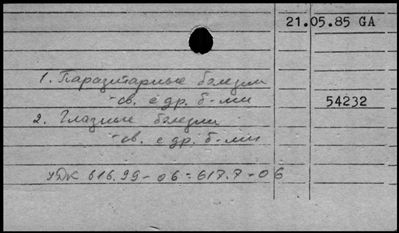 21.05.85 GA
1. Паразитарные болезни
- св. с др. б-ми
54232
2. Глазные болезни
- св. с др. б-ми
УДК 616.99-06:617.7-06